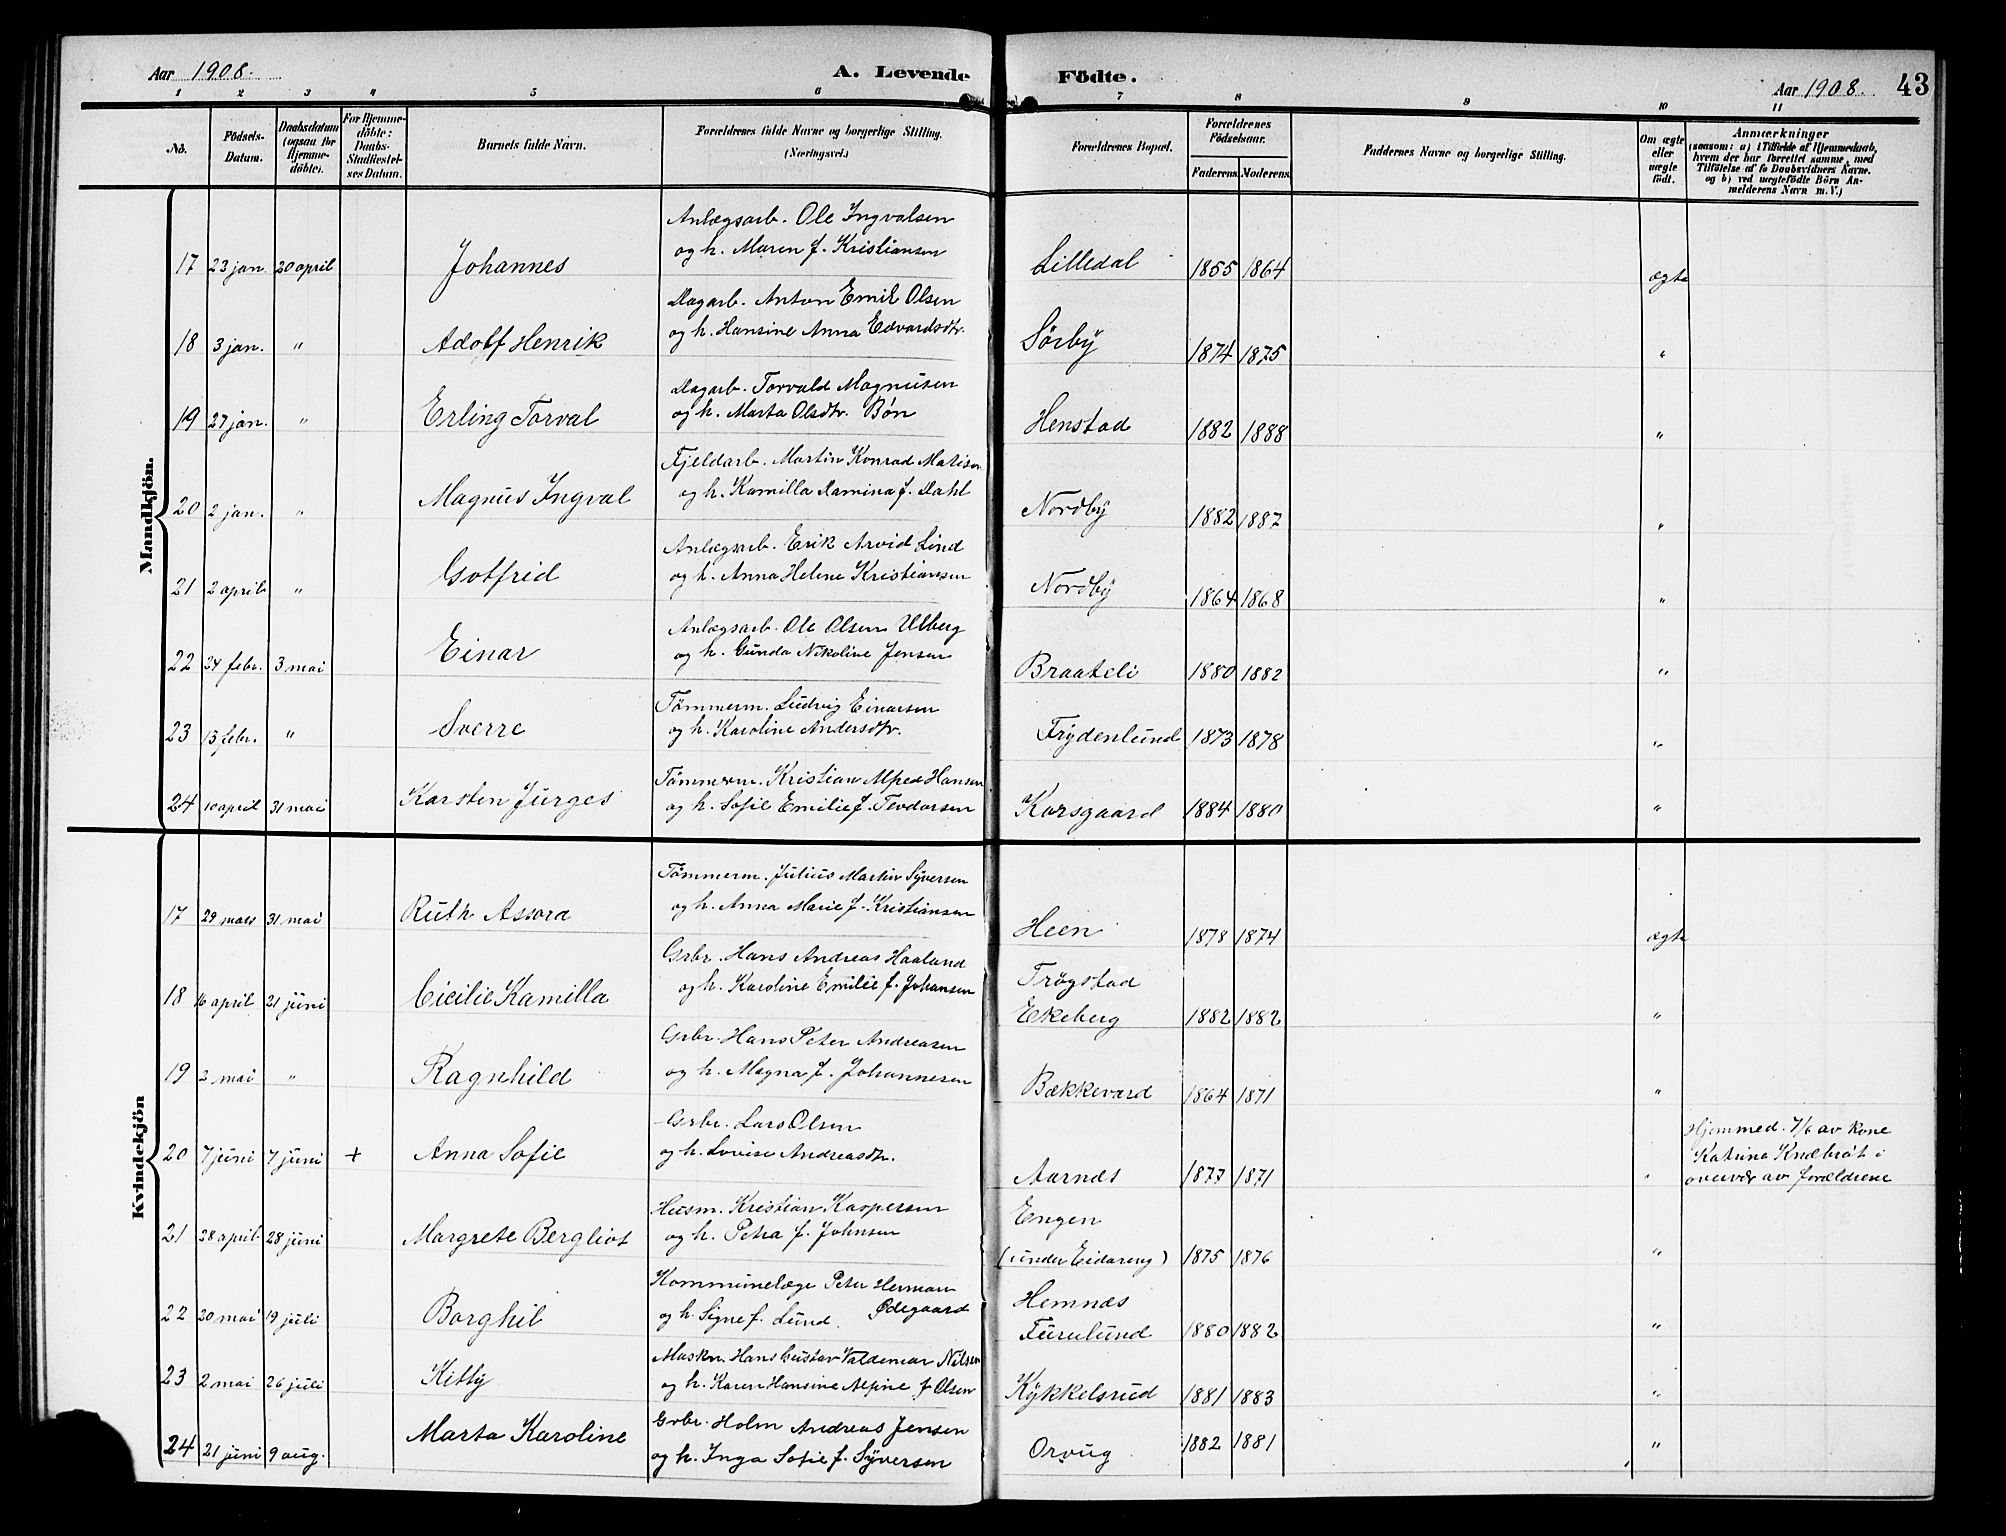 Aar 1908.
A. Levende Födte.
Aar 1908.
43
1 2 3 4 5 6 7 8 9 10 11
No.
Födsels-Datum.
Daabsdatum (ogsaa for Hjemme-döbte).
For Hjemme-döbte: Daabs-Stadfæstel-ses Datum.
Barnets fulde Navn.
Forældrenes fulde Navne og borgerlige Stilling. (Næringsvei.)
Forældrenes Bopæl.
Forældrenes Födselsaar.
Faderens. Moderens.
Faddernes Navne og borgerlige Stilling.
Om ægte eller uægte födt.
Anmærkninger
(saasom: a) i Tilfælde af Hjemmedaab,
hvem der har forrettet samme, med
Tilföielse af to Daabsvidners Navne.
og b) ved uægtefödte Börn An-
melderens Navn m. V.)
Mandkjön.
Anlægsarb. Ole Ingvalsen
og h. Maren f. Kristiansen
17 23 jan. 20 april Johannes Lilledal 1855 1864 ægte
Dagarb. Anton Emil Olsen
og h. Hansine Anna Edvardsdtr.
18 3 jan. " Adolf Henrik Sørby 1874 1875 "
Dagarb. Torvald Magnusen
og h. Marta Olsdtr. Bøn
19 27 jan. " Erling Torval Henstad 1882 1888 "
Fjeldarb. Martin Konrad Matisen
og h. Kamilla Damina f. Dahl
20 2 jan. " Magnus Ingval Nordby 1882 1887 "
Anlægsarb. Erik Arvid Lind
og h. Anna Helene Kristiansen
21 2 april " Gotfrid Nordby 1864 1868 "
Anlægsarb. Ole Olsen Ulberg
og h. Gunda Nikoline Jensen
22 24 febr. 3 mai Einar Braateli 1880 1882 "
Tømmerm. Ludvig Einarsen
og h. Karoline Andersdtr.
23 13 febr. " Sverre Frydenlund 1873 1878 "
Tømmerm. Kristian Alfred Hansen
og h. Sofie Emilie f. Teodorsen
24 10 april 31 mai Karsten Jürges Korsgaard 1884 1880 "
Kvindekjön
Tømmerm. Julius Martin Syversen
og h. Anna Marie f. Kristiansen
17 29 mars 31 mai Ruth Assora Heen 1878 1874 ægte
Grbr. Hans Andreas Haaland
og h. Karoline Emilie f. Johansen
18 16 april 21 juni Cicilie Kamilla Trøgstad
Ekeberg 1882 1882 "
Grbr. Hans Peter Andreasen
og h. Magna f. Johannesen
19 2 mai " Ragnhild Bækkevard 1864 1871 "
Grbr. Lars Olsen
og h. Lovise Andreasdtr.
20 7 juni 7 juni + Anna Sofie Aarnes 1877 1871 "
Hjemmed. 7/6 av kone
Katrina Knæbråt i
overvær av forældrene
Husm. Kristian Kaspersen
og h. Petra f. Johnsen
21 28 april 28 juni Margrete Bergliot Engen
(under Eidareng) 1875 1876 "
Kommunelæge Peter Herman
og h. Signe f. Lund. Ødegaard
22 20 mai 19 juli Borghil Hemnes
Furulund 1880 1882 "
Maskn. Hans Gustav Valdemar Nilsen
og h. Karen Hansine Alpine f. Olsen
23 2 mai 26 juli Kitty Kykkelsrud 1881 1883 "
Grbr. Holm Andreas Jensen
og h. Inga Sofie f. Syversen
24 21 juni 9 aug. Marta Karoline Orvug 1882 1881 "